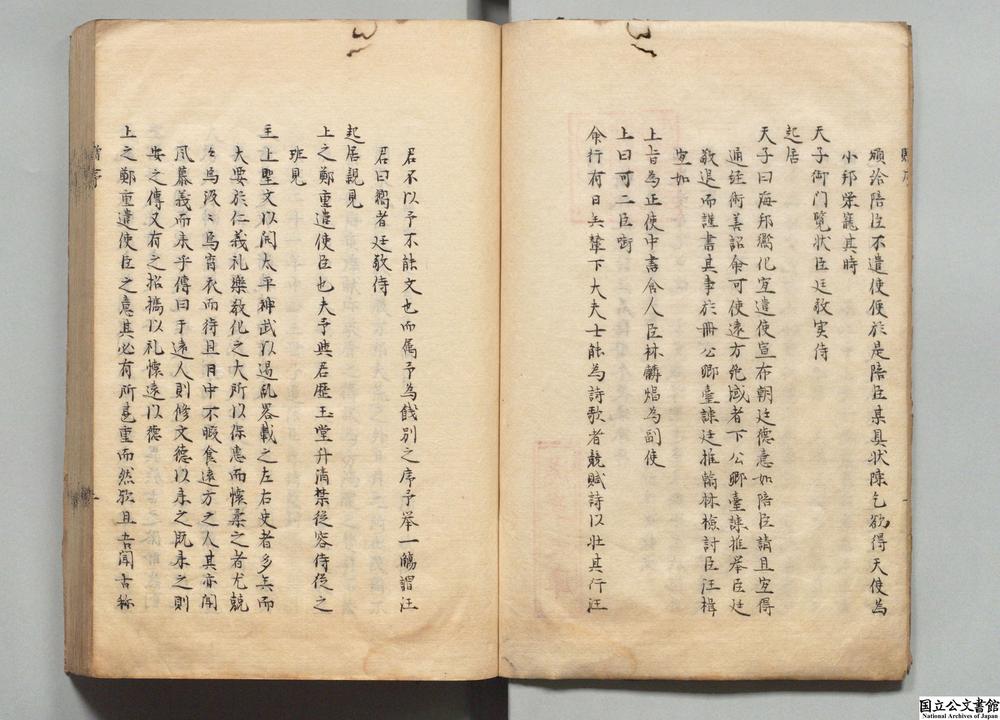 頒洽陪臣不遣使便於是陪臣某具状陳乞欲得天使為
小邦栄寵其時
天子御门覽状臣廷敬実侍
起居
天子曰海邦嚮化宜遣使宣布朝廷德意如陪臣請且宜得
通经術美詔命可使遠方絶域者下公卿臺諫推举臣廷
敬退而謹書其事於冊公卿臺諫廷推翰林檢討臣汪楫
宜如
上旨為正使中書舍人臣林麟焻為副使
上曰可二臣衘
命行有日矣輦下大夫士能為詩歌者競賦詩以壮其行汪
君不以予不能文也而属予為餞别之序予举一觴謂汪
君曰嚮者廷敬侍
起居親見
上之鄭重遣使臣也夫予與君歷玉堂升清禁從容侍從之
班見
主上聖文以闻太平神武以遏乱畧載之左右史者多矣而
大要於仁義礼樂教化之大所以保惠而懷柔之者尤兢
々焉汲々焉宵衣而待旦日中不暇食遠方之人其亦闻
風慕義而来乎傳曰于遠人則修文德以来之既来之則
安之傳又有之招攜以礼懷遠以德
上之鄭重遣使臣之意其必有所甚重而然欤且吾闻古称
国立公文書館
National Archives of Japan